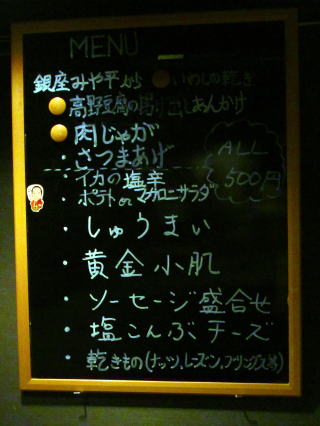 MENU
銀座みや平 いわしの乾き
高野豆腐の揚げ出しあんかけ
肉じゃが
・さつまあげ
ALL
500円
・イカの塩辛
・ポテト or マカロニサラダ
・しゅうまい
・黄金小肌
・ソーセージ盛合せ
・塩こんぶチーズ
・乾きもの(ナッツ、レーズン、プリングス等)